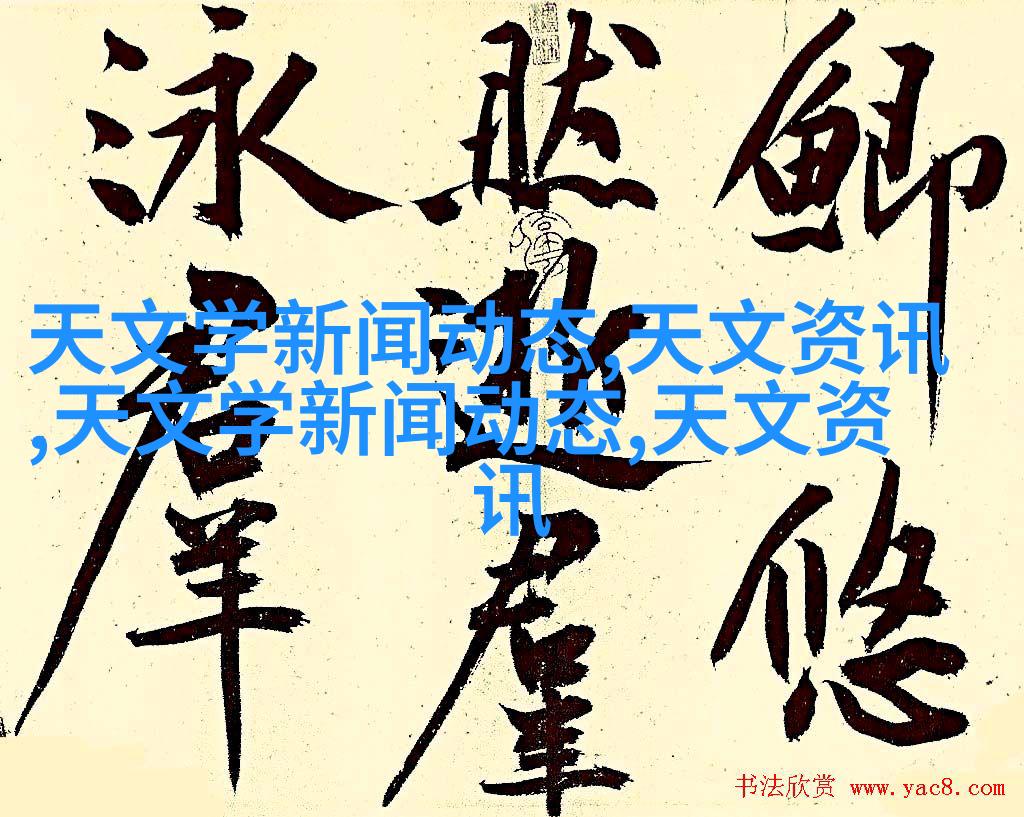 鲫悠
然群
泳羣
天文学新闻动态,天文资讯
,天文学新闻动态,天文资
讯
书法欣赏 www.yac8.com